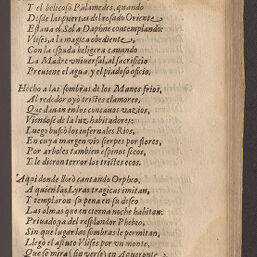 Y el belicoso Palamedes, quando
Desde las puertas del rosado Oriente
Estaua el Sol a Daphne contemplando:
Vlises, a la magica obediente,
Con la espada beligera cauando
La Madre vniuersal, al sacrificio
Preuiene el agua, y el piadoso oficio.
Hecho a las sombras de los Manes frios,
Al rededor oyò tristes clamores,
Que dauan en los concauos vazios,
Viendose de la luz habitadores:
Luego buscò los infernales Rios,
En cuya margen viò sierpes por flores,
Por arboles tambien espinos secos,
Y le dieron terror los tristes ecos.
Aqui donde llorò cantando Orpheo,
A quien las Lyras tragicas imitan,
Y templaron su pena en su deseo
Las almas que en eterna noche habitan:
Priuado ya del resplandor Phebeo,
Sin que lugar las sombras le permitan,
Llegò el astuto Vlises por vn monte,
Que se mira sin verse en Aqueronte.